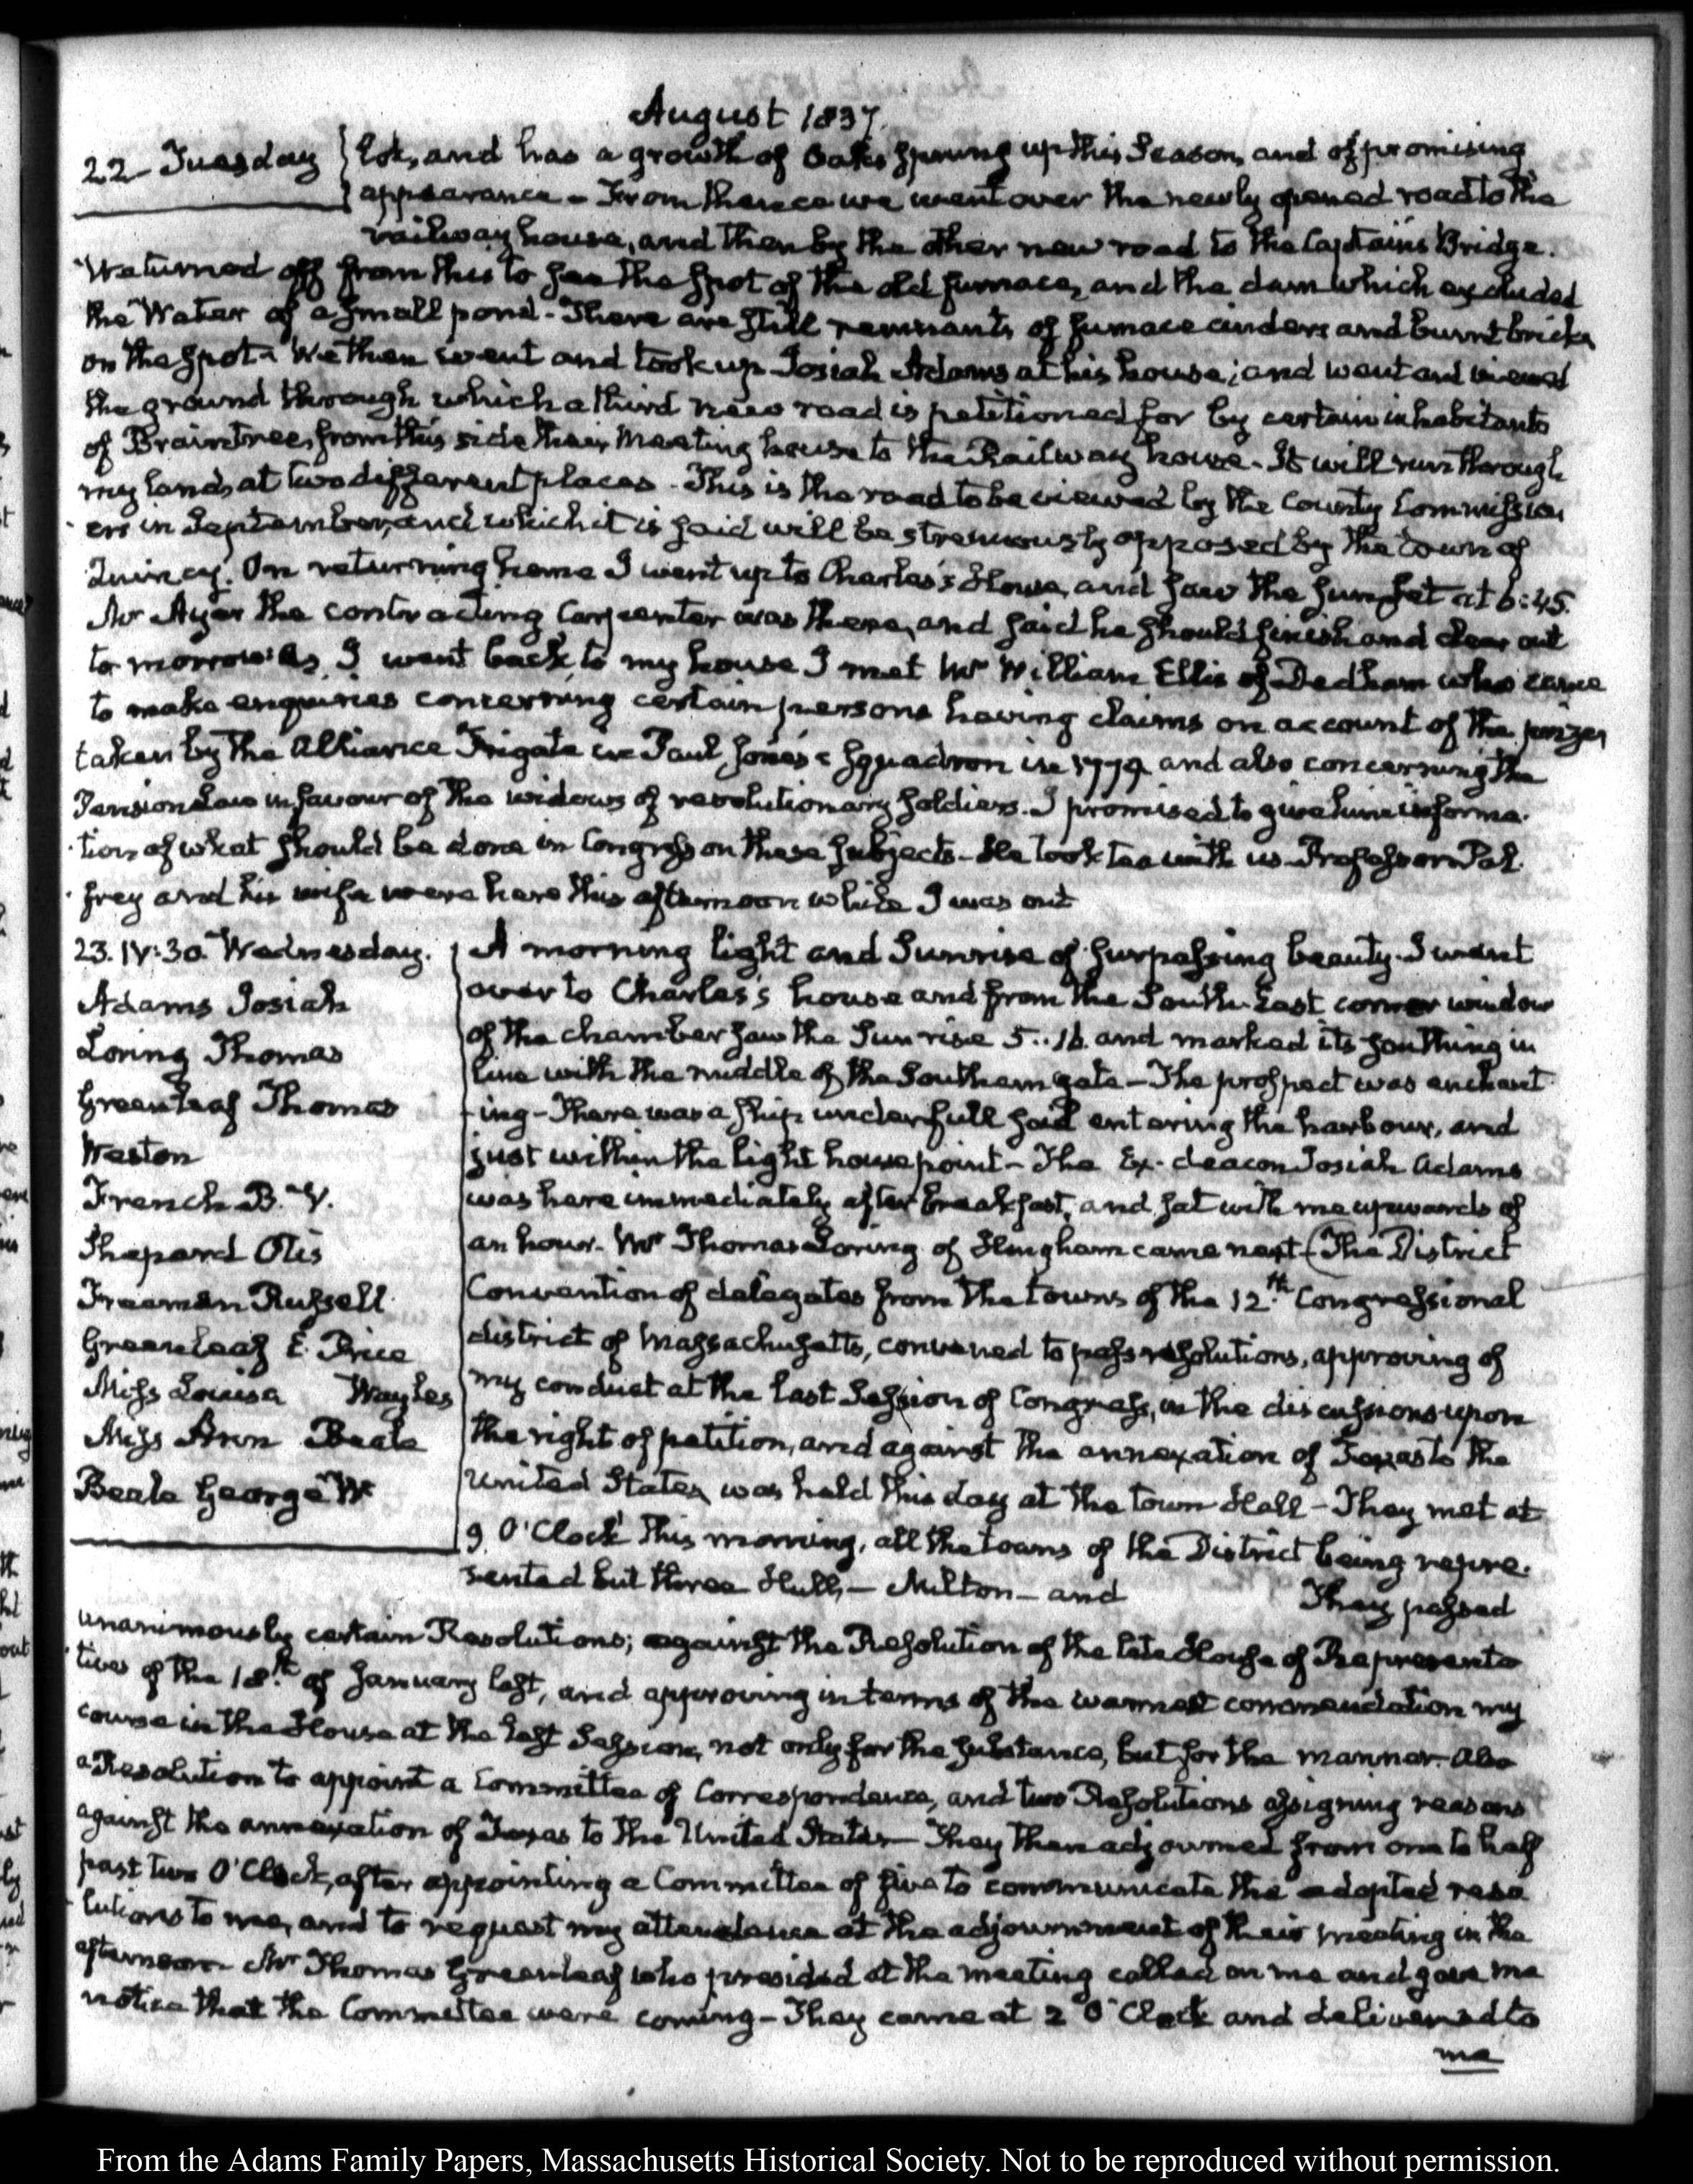 August 1837.
22 Tuesday
lot, and has a growth of Oaks sprung up this Season, and of promising
appearance - From thence we went over the newly opened road to the
railway house, and then by the other new road to the Captain's Bridge.
We turned off from this to see the spot of the old furnace, and the dam which excluded
the Water of a small pond - There are still remnants of furnace cinders and burnt bricks
on the spot - We then went and took up Josiah Adams at his house; and went and viewed
the ground through which a third new road is petitioned for by certain inhabitants
of Braintree, from this side their Meeting house to the Railway house - It will run through
my lands at two different places - This is the road to be viewed by the County Commission
ers in September, and which it is said will be strenuously opposed by the town of
Quincy. On returning home I went up to Charles's House, and saw the Sun set at 6:45.
Mr Ayer the contracting Carpenter was there, and said he should finish and clear out
to morrow. As I went back to my house I met Mr William Ellis of Dedham who came
to make enquiries concerning certain persons having claims on account of the prizes
taken by the Alliance Frigate in Paul Jones's Squadron in 1779 and also concerning the
Pension Law in favour of the widows of revolutionary soldiers. I promised to give him informa-
tion of what should be done in Congress on these subjects - He took tea with us - Professor Pal-
frey and his wife were here this afternoon while I was out
23. IV:30. Wednesday.
Adams Josiah
Loring Thomas
Greenleaf Thomas
Weston
French B. V.
Shepard Otis
Freeman Russell
Greenleaf E. Price
Miss Louisa Wayles
Miss Ann Beale
Beale George W
A morning light and Sunrise of surpassing beauty. I went
over to Charles's house and from the South East corner window
of the chamber saw the Sun rise 5..16. and marked its southing in
line with the middle of the Southern gate - The prospect was enchant-
ing - There was a ship under full sail entering the harbour, and
just within the light house point - The Ex-deacon Josiah Adams
was here immediately after breakfast, and sat with me upwards of
an hour - Mr Thomas Loring of Hingham came next (The District
Convention of delegates from the towns of the 12th Congressional
district of Massachusetts, convened to pass resolutions, approving of
my conduct at the last Session of Congress, in the discussions upon
the right of petition, and against the annexation of Texas to the
United States, was held this day at the Town Hall - They met at
9 O'Clock this morning, all the towns of the District being repre-
sented but three Hull, - Milton - and They passed
unanimously certain Resolutions; against the Resolution of the late House of Representa
tives of the 18th of January last, and approving in terms of the warmest commendation my
course in the House at the last Session, not only for the substance, but for the manner. Also
a Resolution to appoint a Committee of Correspondence, and two Resolutions assigning reasons
against the annexation of Texas to the United States - They then adjourned from one to half
past two O'Clock, after appointing a Committee of five to communicate the adopted reso
lutions to me, and to request my attendance at the adjournment of their meeting in the
afternoon - Mr Thomas Greenleaf who presided at the meeting called on me and gave me
notice that the Committee were coming - They came at 2 O'Clock and delivered to
me
From the Adams Family Papers, Massachusetts Historical Society. Not to be reproduced without permission.